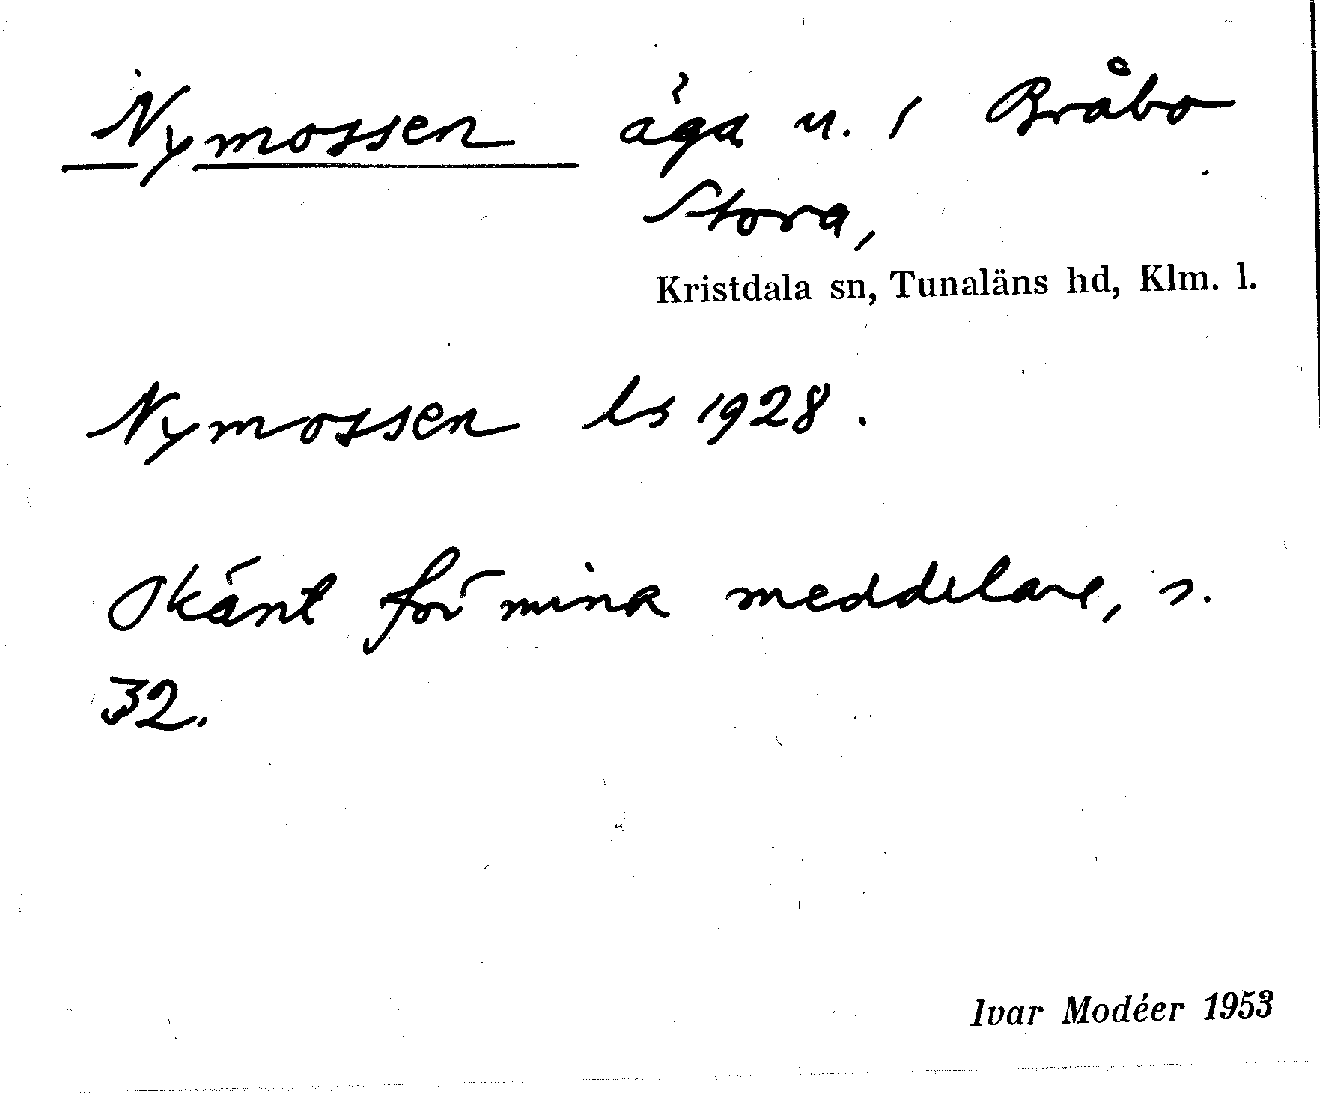 Nymossen äga u. 1 Bråbo
Stora,
Kristdala sn, Tunaläns hd, Klm. l.
Nymossen ls 1928.
Okänt för mina meddelare, s.
32.
Ivar Modéer 1953